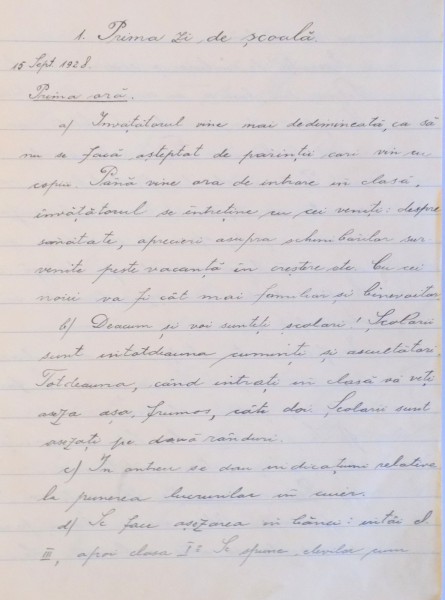 1. Prima zi de școală.
15 Sept 1928.
Prima oră.
a) Invățătorul vine mai dedimineață, ca să
nu se facă așteptat de părinții cari vin cu
copii. Până vine ora de intrare in clasă,
invățătorul se întreține cu cei veniți: despre
sănătate, aprecieri asupra schimbărilor sur
venite peste vacanță în creștere etc. Cu cei
noici va fi cât mai familiar si binevoitor
b) Deacum și voi sunteți școlari! Școlarii
sunt intotdeauna cuminți și ascultători.
Totdeauna, când intrati in clasă vă veți
așeza așa, frumos, câte doi. Școlarii sunt
așezați pe două rânduri.
c) In antreu se dau indicațiuni relative
la punerea lucrurilor in cuier.
d) Se face așezarea in bănci: intâi cl
III, apoi clasa I. Se spune elevilor cum